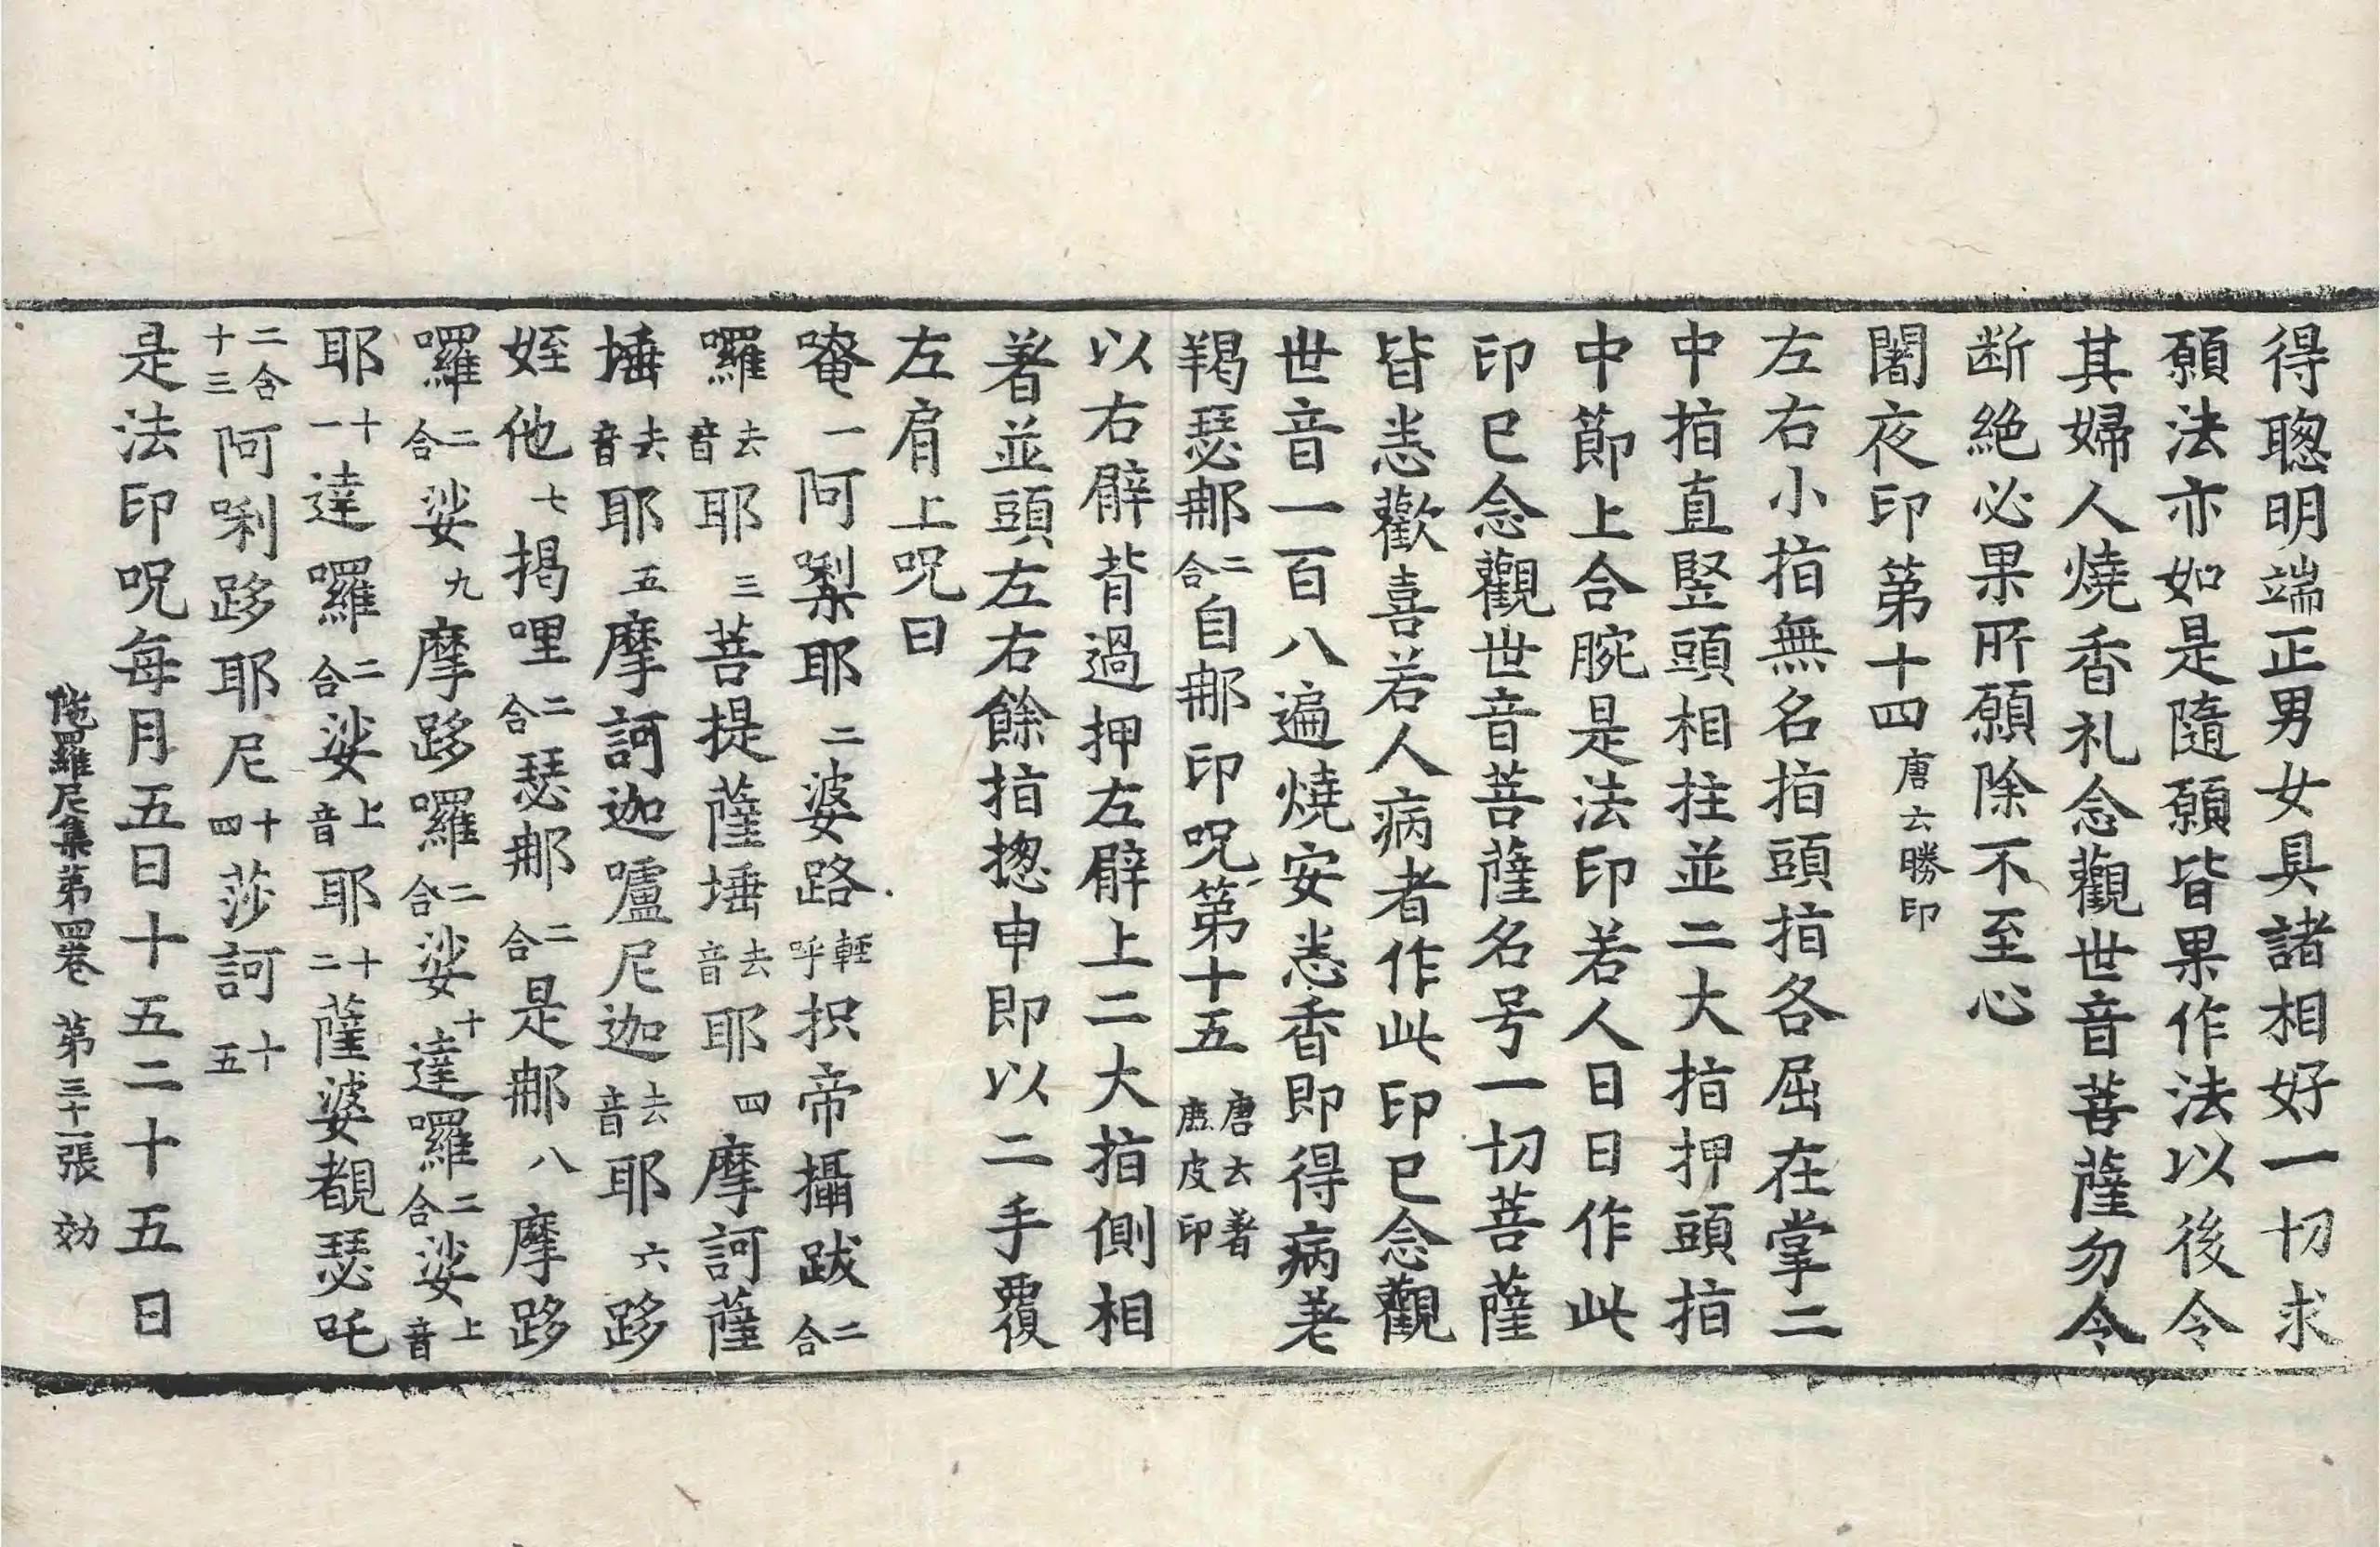 得聦明端正男女具諸相好一切求
願法亦如是隨願皆果作法以後令
其婦人燒香礼念觀世音菩薩勿令
断絶必果所願除不至心
闍夜印第十四唐云勝印
左右小指無名指頭指各屈在掌二
中指直竪頭相拄並二大指押頭指
中節上合腕是法印若人日日作此
印已念觀世音菩薩名号一切菩薩
皆悉歡喜若人病者作此印已念觀
世音一百八遍燒安悉香即得病差
羯瑟那二合自那印呪第十五唐云著鹿皮印
以右臂背過押左臂上二大指側相
著並頭左右餘指揔申即以二手覆
左肩上呪曰
唵一阿㗚耶二婆路輕呼抧帝攝跋二合
囉去音耶三菩提薩埵去音耶四摩訶薩
埵去音耶五摩訶迦嚧尼迦去音耶六跢
姪他七揭哩二合瑟那二合是那八摩跢
囉二合娑九摩跢囉二合娑十達囉二合娑上音
耶十一達囉二合娑上音耶十二薩婆覩瑟吒
二合十三阿唎跢耶尼十四莎訶十五
是法印呪每月五日十五二十五日
陁羅尼集第四卷 第三十一張 効